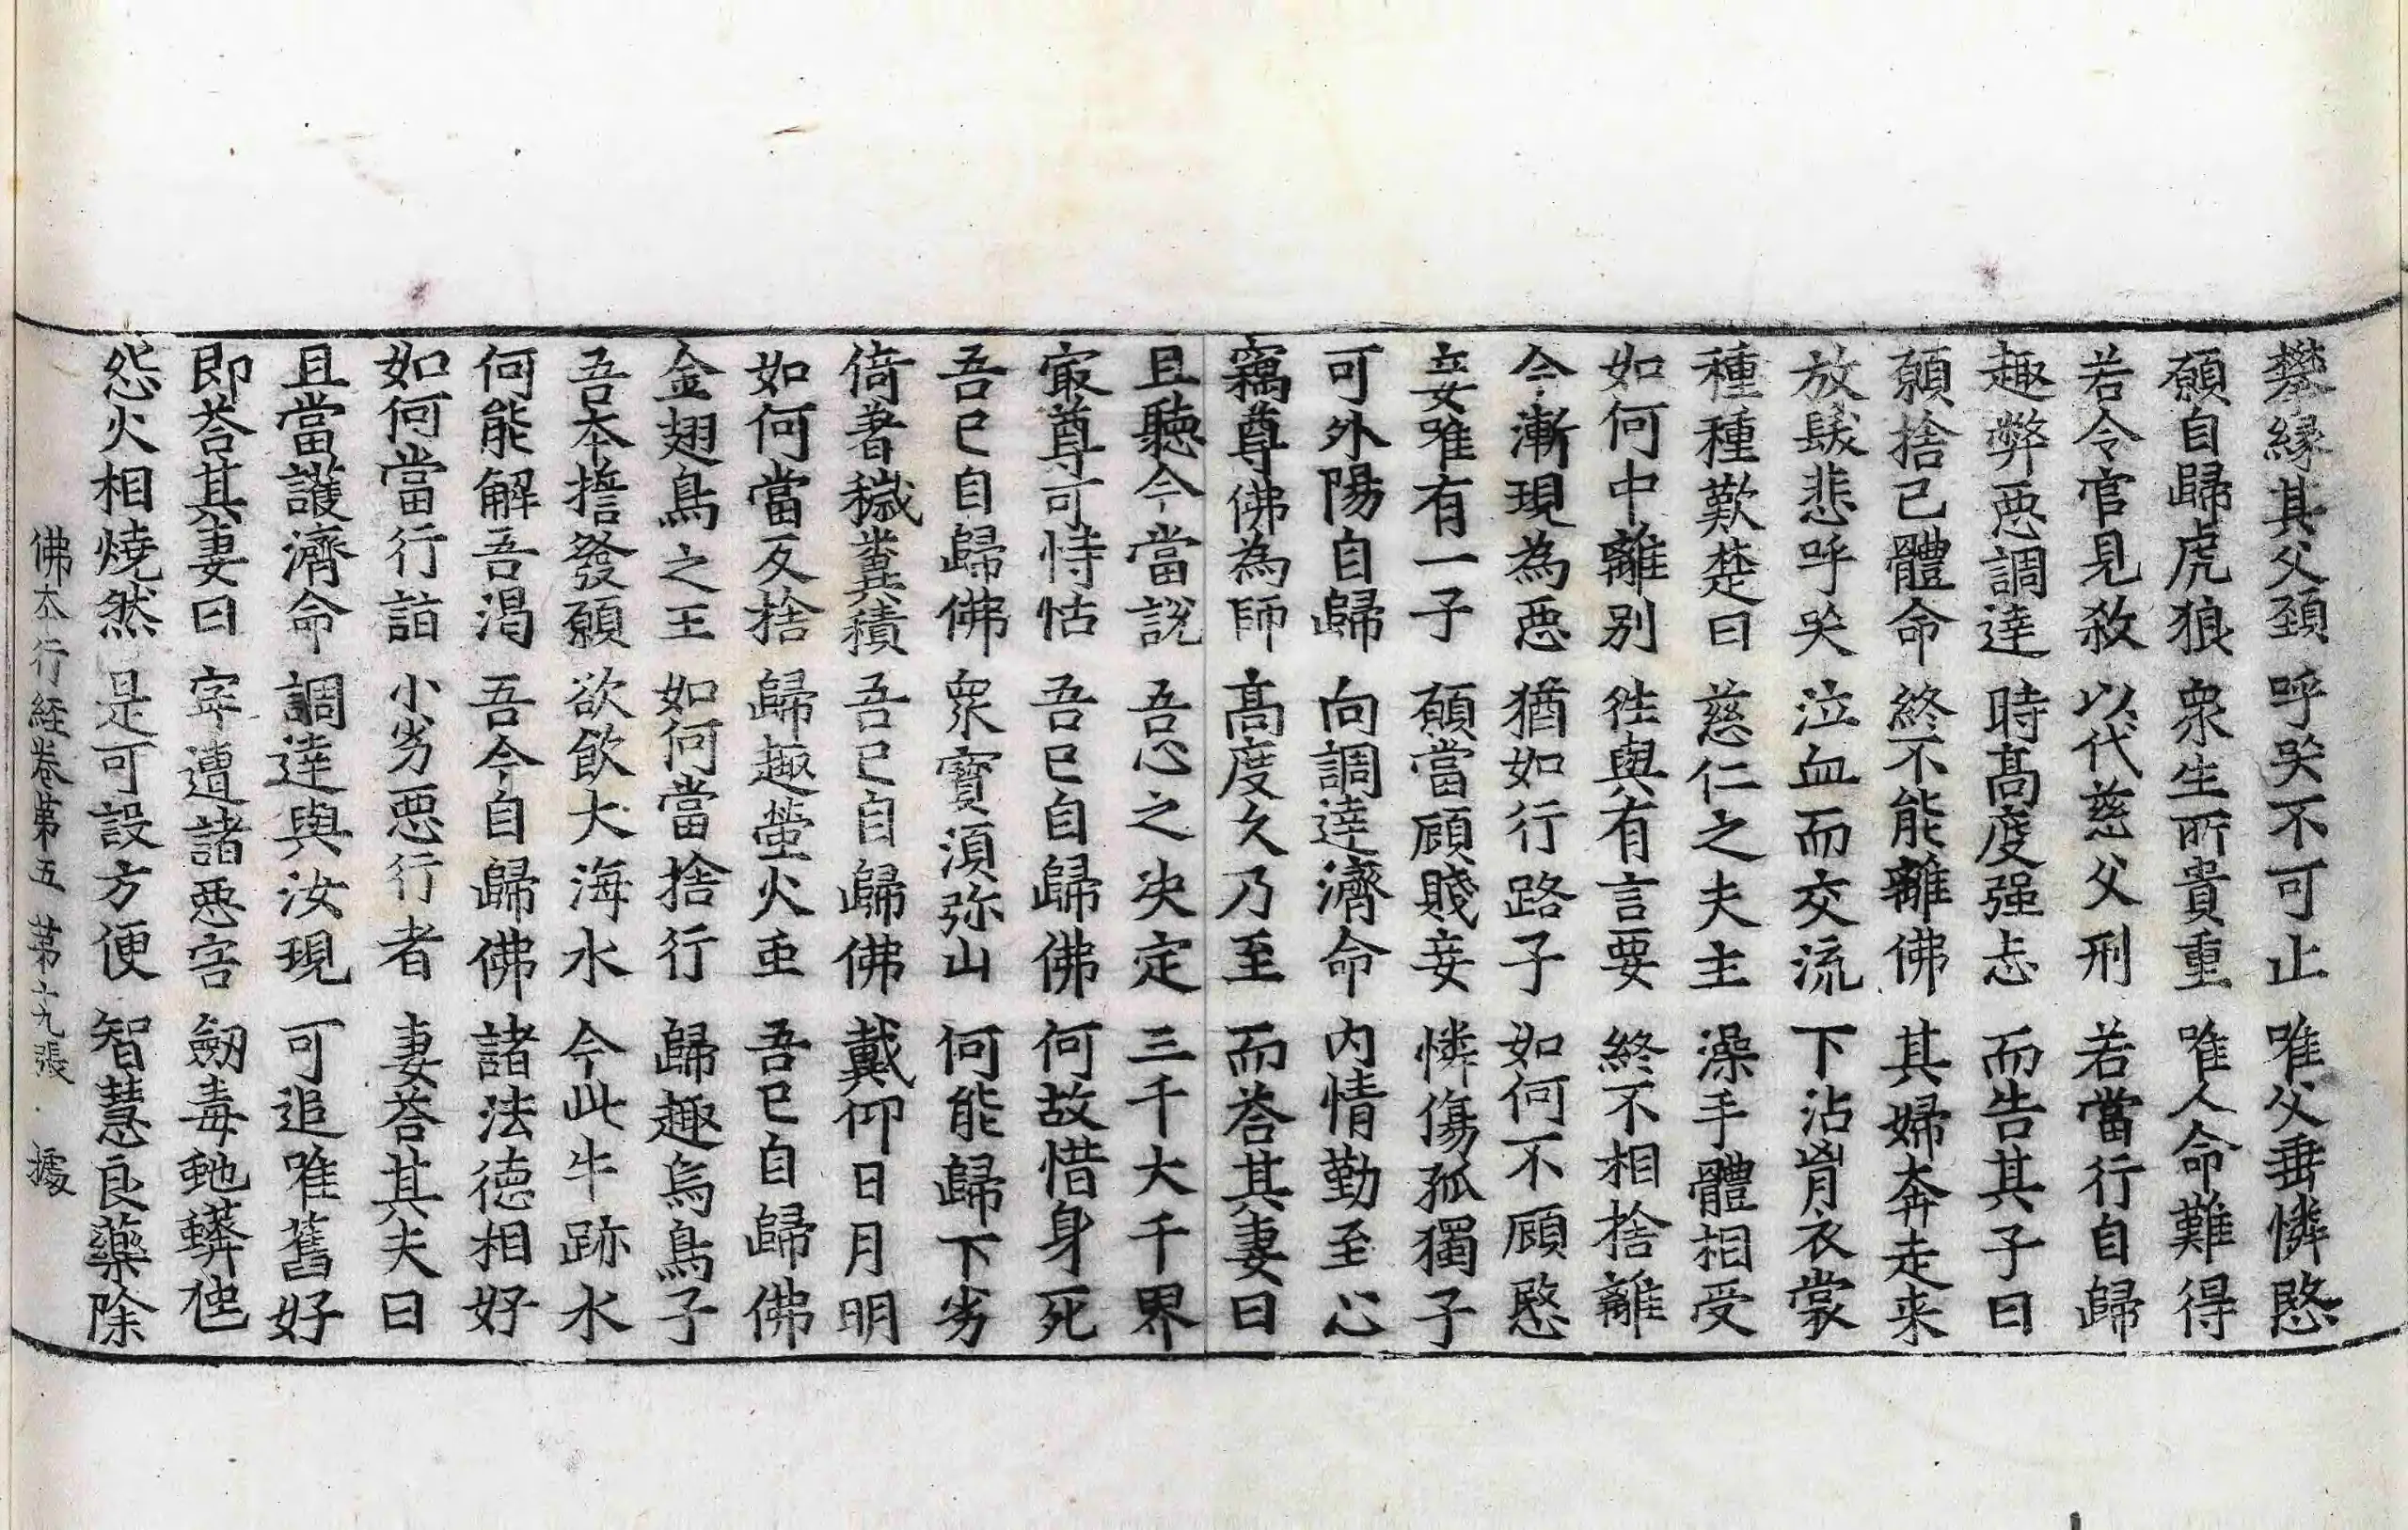 攀緣其父頚 呼哭不可止 唯父垂憐愍
願自歸虎狼 衆生所貴重 唯人命難得
若令官見殺 以代慈父刑 若當行自歸
趣弊惡調達 時高度强志 而告其子曰
願捨己體命 終不能離佛 其婦奔走来
放髮悲呼哭 泣血而交流 下沾胷衣裳
種種歎楚曰 慈仁之夫主 澡手體相受
如何中離别 徃與有言要 終不相捨離
今漸現為惡 猶如行路子 如何不顧愍
妾唯有一子 願當顧賤妾 憐傷孤獨子
可外陽自歸 向調達濟命 内情勤至心
竊尊佛為師 高度久乃至 而荅其妻曰
且聽今當說 吾心之决定 三千大千界
冣尊可恃怙 吾已自歸佛 何故惜身死
吾已自歸佛 衆寶湏弥山 何能歸下劣
倚著穢糞積 吾已自歸佛 戴仰日月明
如何當反捨 歸趣螢火䖝 吾已自歸佛
金翅鳥之王 如何當捨行 歸趣烏鳥子
吾本誓發願 欲飲大海水 今此牛跡水
何能解吾渴 吾今自歸佛 諸法德相好
如何當行詣 小劣惡行者 妻荅其夫曰
且當護濟命 調達與汝現 可追唯舊好
即荅其妻曰 寧遭諸惡害 劒毒虵蠎他
怨火相燒然 是可設方便 智慧良藥除
佛本行經卷第五 第十九張 據